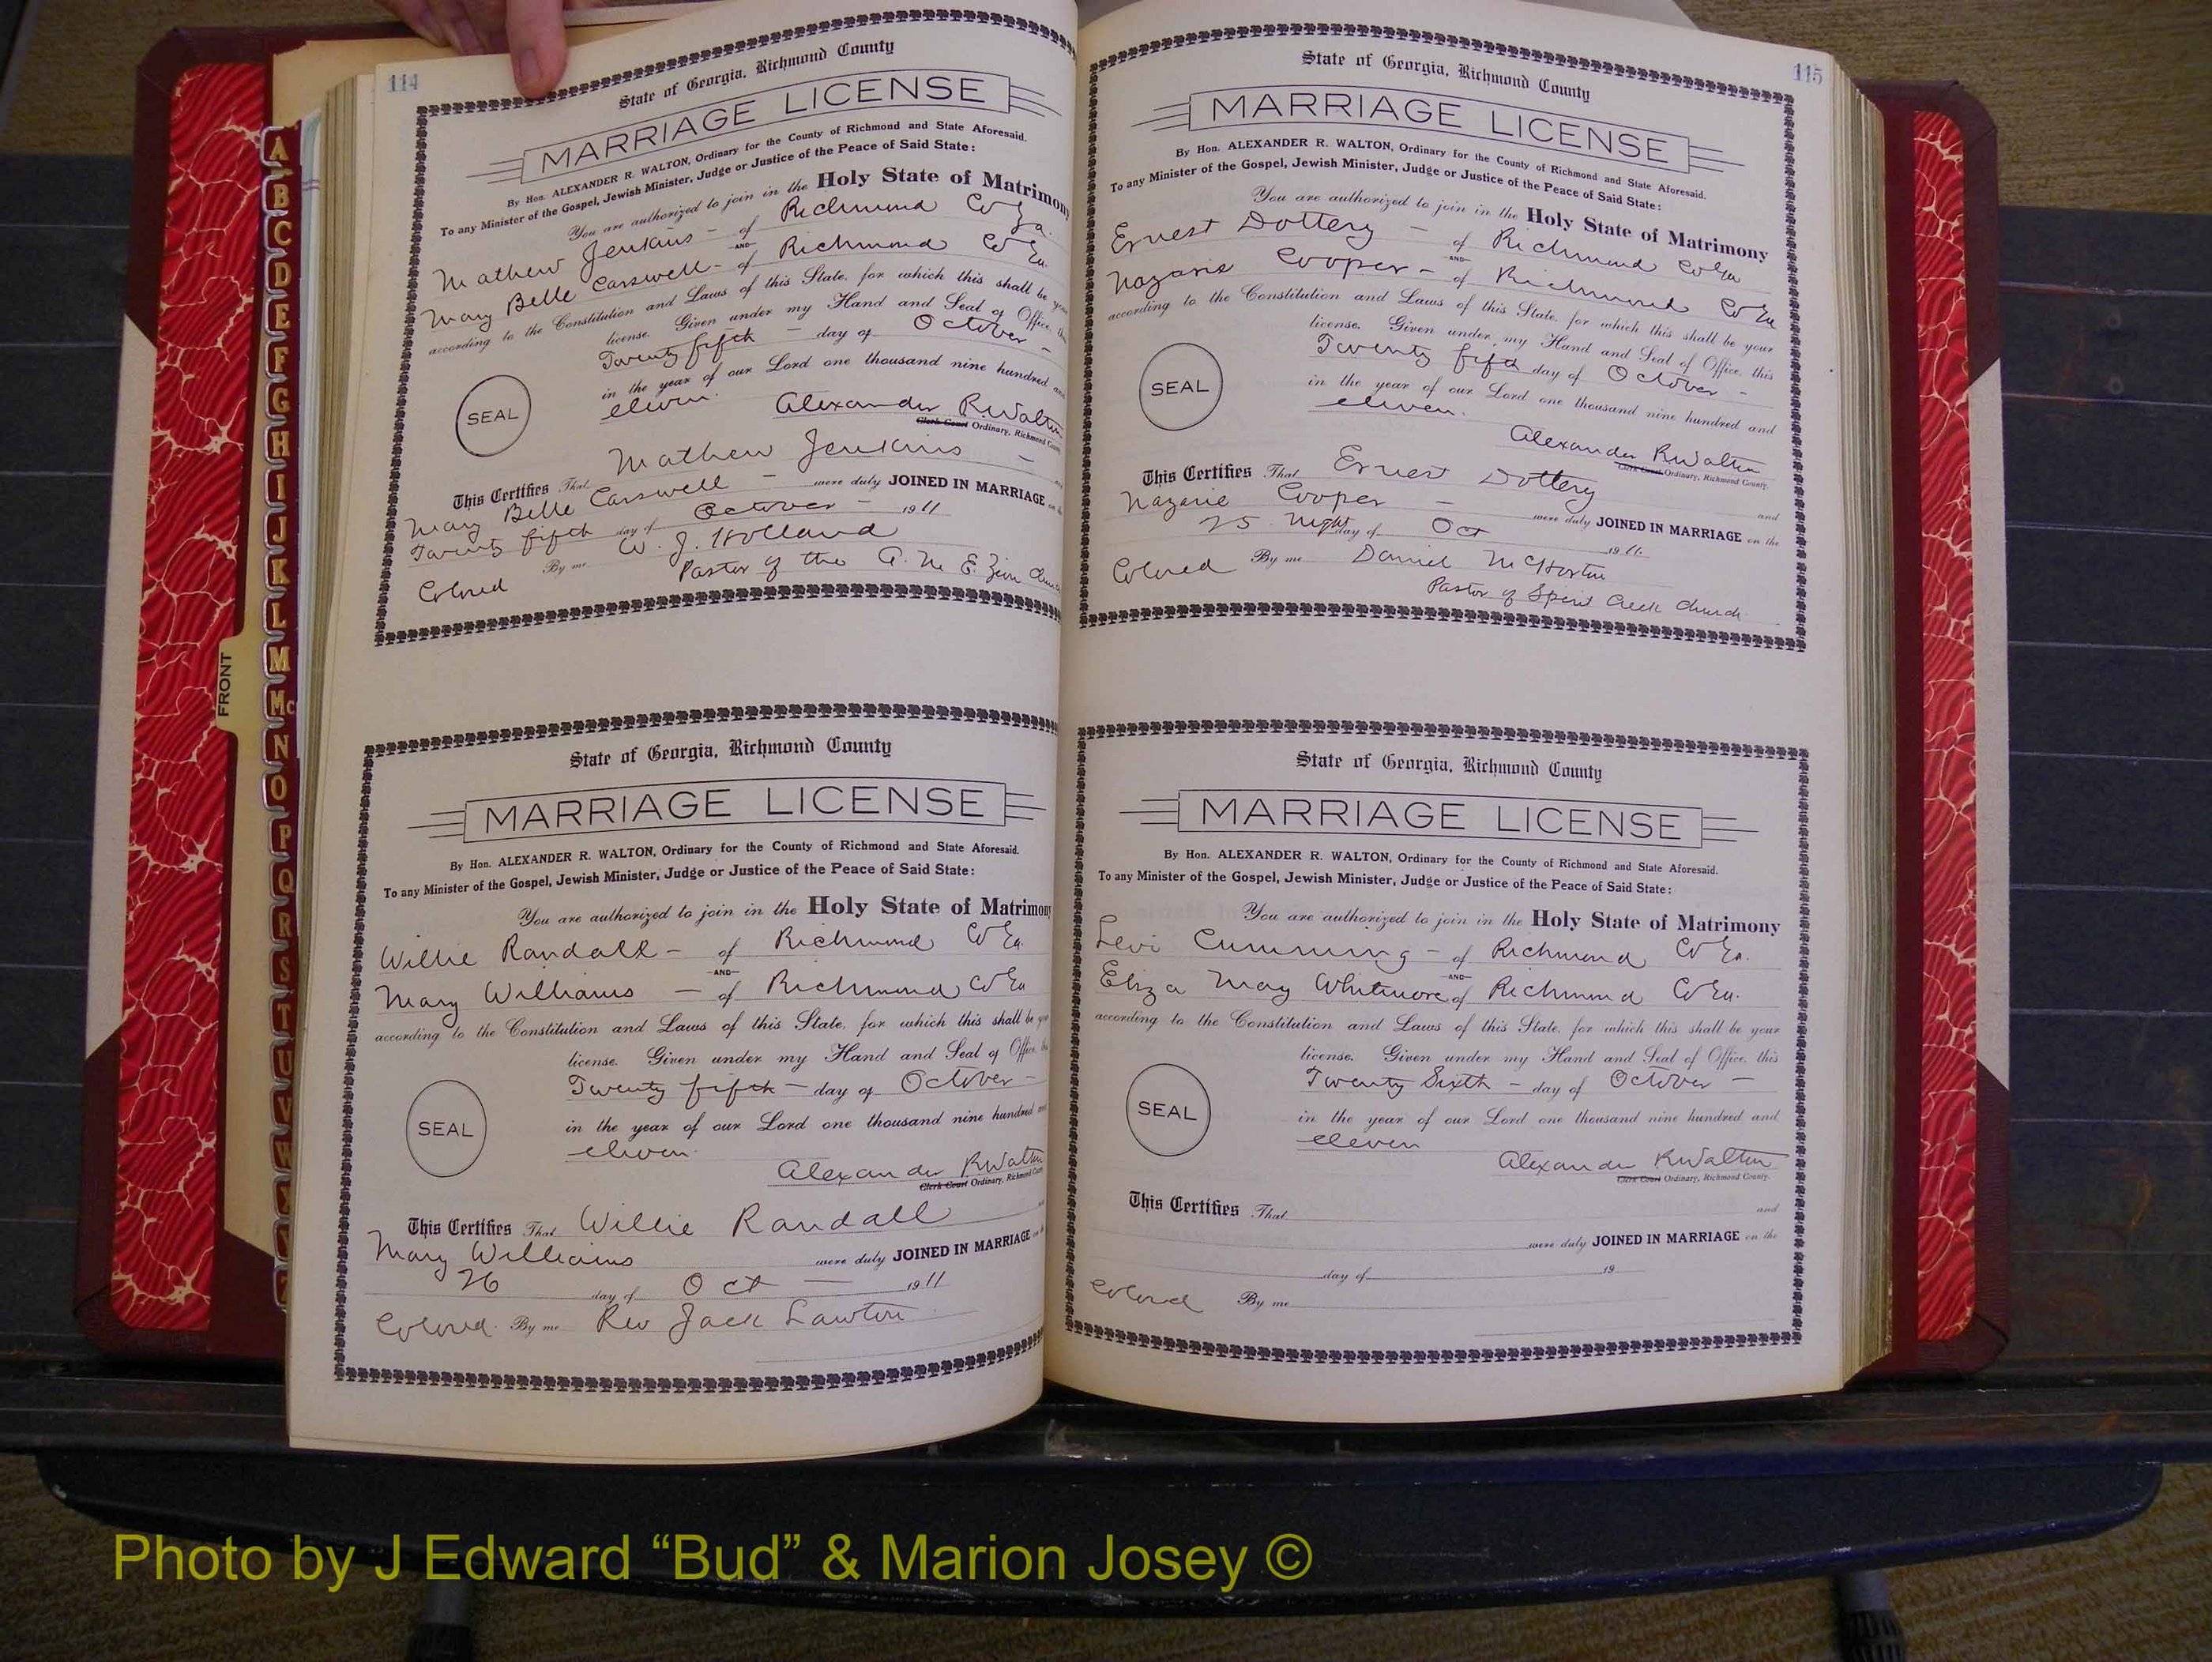 114
State of Georgia, Richmond County
MARRIAGE LICENSE
By Hon. ALEXANDER R. WALTON, Ordinary for the County of Richmond and State Aforesaid.
To any Minister of the Gospel, Jewish Minister, Judge or Justice of the Peace of Said State:
You are authorized to join in the Holy State of Matrimony
Mathew Jenkins - of Richmond Co Ga.
AND
Mary Belle Carswell - of Richmond Co Ga.
according to the Constitution and Laws of this State, for which this shall be
license. Given under my Hand and Seal of Office,
Twenty fifth - day of October -
in the year of our Lord one thousand nine hundred
eleven.
SEAL
Alexander R Walton
Clerk Court Ordinary, Richmond
This Certifies That Mathew Jenkins -
Mary Belle Carswell - were duly JOINED IN MARRIAGE
Twenty fifth day of October - 1911
Colored By me W. J. Holland
Pastor of the A. M. E. Zion
State of Georgia, Richmond County
MARRIAGE LICENSE
By Hon. ALEXANDER R. WALTON, Ordinary for the County of Richmond and State Aforesaid.
To any Minister of the Gospel, Jewish Minister, Judge or Justice of the Peace of Said State:
You are authorized to join in the Holy State of Matrimony
Willie Randall - of Richmond Co Ga.
AND
Mary Williams - of Richmond Co Ga
according to the Constitution and Laws of this State, for which this shall be
license. Given under my Hand and Seal of Office,
Twenty fifth - day of October -
in the year of our Lord one thousand nine hundred
eleven.
SEAL
Alexander R Walton
Clerk Court Ordinary, Richmond
This Certifies That Willie Randall
Mary Williams were duly JOINED IN MARRIAGE
26 day of Oct - 1911
Colored. By me Rev Jack Lawton
115
State of Georgia, Richmond County
MARRIAGE LICENSE
By Hon. ALEXANDER R. WALTON, Ordinary for the County of Richmond and State Aforesaid.
To any Minister of the Gospel, Jewish Minister, Judge or Justice of the Peace of Said State:
You are authorized to join in the Holy State of Matrimony
Ernest Dottery - of Richmond Co Ga
AND
Nazarie Cooper - of Richmond Co Ga
according to the Constitution and Laws of this State, for which this shall be your
license. Given under my Hand and Seal of Office, this
Twenty fifth day of October -
in the year of our Lord one thousand nine hundred and
eleven.
SEAL
Alexander R Walton
Clerk Court Ordinary, Richmond County.
This Certifies That Ernest Dottery and
Nazarie Cooper - were duly JOINED IN MARRIAGE on the
25 Night day of Oct 1911.
Colored By me Daniel McHorton
Pastor of Spirit Creek Church
State of Georgia, Richmond County
MARRIAGE LICENSE
By Hon. ALEXANDER R. WALTON, Ordinary for the County of Richmond and State Aforesaid.
To any Minister of the Gospel, Jewish Minister, Judge or Justice of the Peace of Said State:
You are authorized to join in the Holy State of Matrimony
Levi Cumming - of Richmond Co Ga.
AND
Eliza May Whitmore of Richmond Co Ga.
according to the Constitution and Laws of this State, for which this shall be your
license. Given under my Hand and Seal of Office, this
Twenty Sixth - day of October -
in the year of our Lord one thousand nine hundred and
eleven
SEAL
Alexander R Walton
Clerk Court Ordinary, Richmond County.
This Certifies That and
were duly JOINED IN MARRIAGE on the
day of 19
Colored By me
A
B
C
D
E
F
G
H
I
J
K
L
M
Mc
N
O
P
Q
R
S
T
U
V
W
FRONT
Photo by J Edward “Bud” & Marion Josey ©